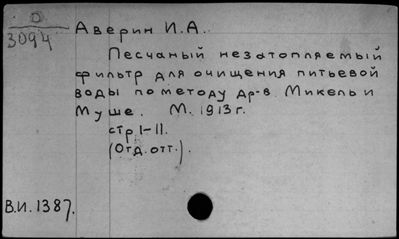 О
3094
Аверин И.А.
Песчаный незатопляемый
фильтр для очищения питьевой
воды по методу др-в. Микель и
Муше. М. 1913 г.
стр 1-11.
(Отд. отт.).
В.И. 1387.